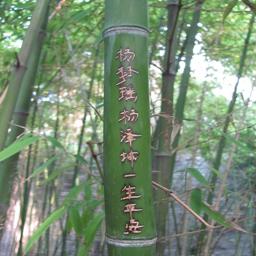 杨梦瑶杨泽坤一生平安